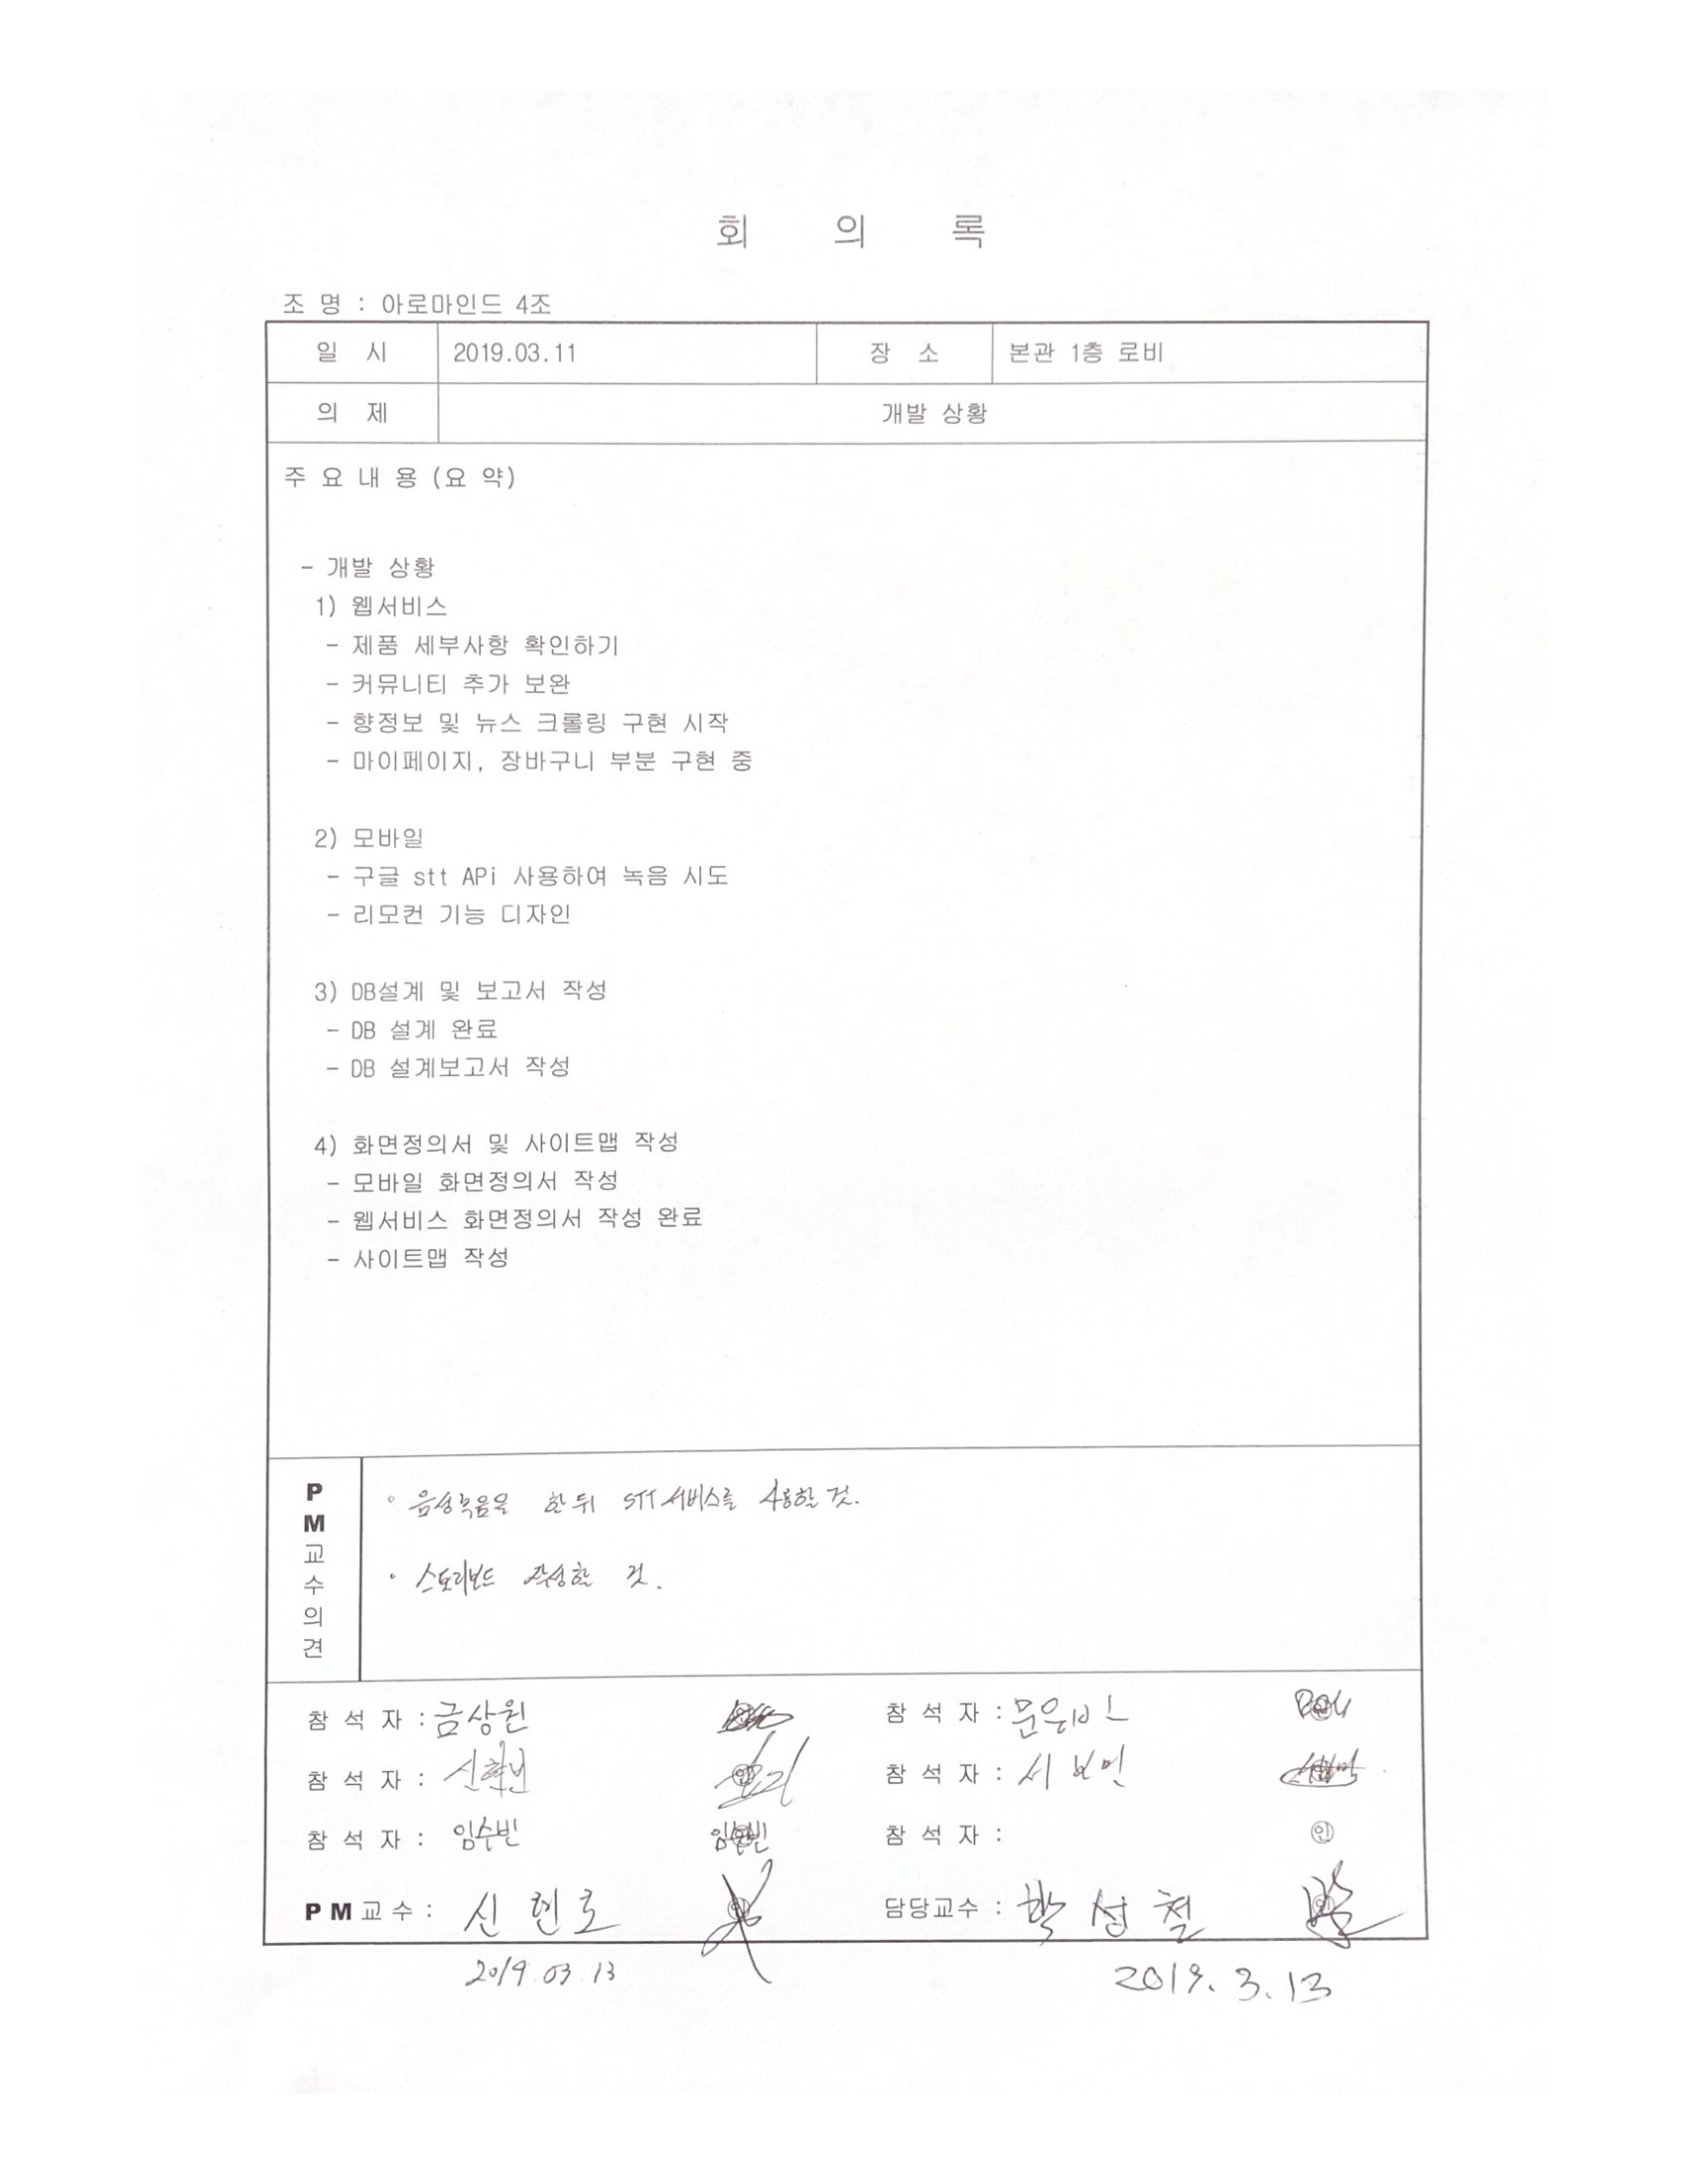 회 의 록
조 명 : 아로마인드 4조
일 시 2019.03.11 장 소 본관 1층 로비
의 제 개발 상황
주 요 내 용 (요 약)
- 개발 상황
1) 웹서비스
- 제품 세부사항 확인하기
- 커뮤니티 추가 보완
- 향정보 및 뉴스 크롤링 구현 시작
- 마이페이지, 장바구니 부분 구현 중
2) 모바일
- 구글 stt APi 사용하여 녹음 시도
- 리모컨 기능 디자인
3) DB설계 및 보고서 작성
- DB 설계 완료
- DB 설계보고서 작성
4) 화면정의서 및 사이트맵 작성
- 모바일 화면정의서 작성
- 웹서비스 화면정의서 작성 완료
- 사이트맵 작성
PM교수의견
◦ 음성녹음을 한 뒤 STT 서비스를 사용할 것.
◦ 스토리보드 작성할 것.
참 석 자 : 금상원 참 석 자 : 문은비
참 석 자 : 참 석 자 : 서보민
참 석 자 : 임수빈 임수빈 참 석 자 : 인
PM교수 : 신현호 담당교수 : 박성철
2019.03.13 2019.3.13